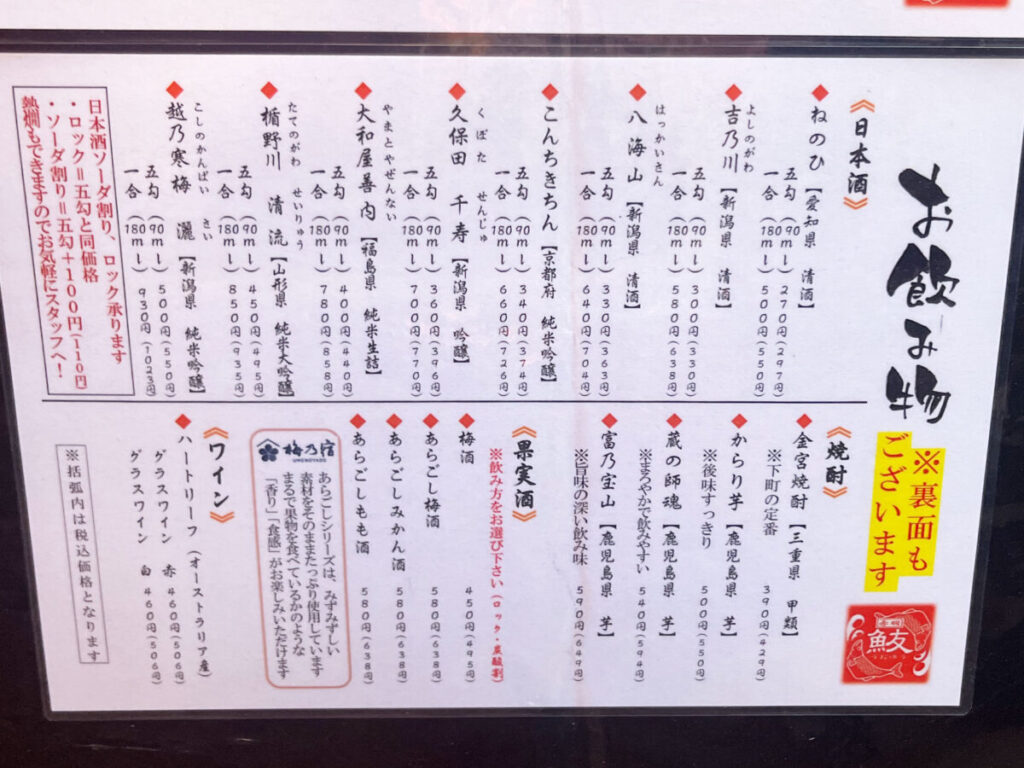 お飲み物
※裏面も
ございます
《日本酒》
◆ねのひ【愛知県 清酒】
五勾(90ml)270円(297円)
一合(180ml)500円(550円)
よしのがわ
◆吉乃川【新潟県 清酒】
五勾(90ml)300円(330円)
一合(180ml)580円(638円)
はっかいさん
◆八海山【新潟県 清酒】
五勾(90ml)330円(363円)
一合(180ml)640円(704円)
◆こんちきちん【京都府 純米吟醸】
五勾(90ml)340円(374円)
一合(180ml)660円(726円)
くぼた せんじゅ
◆久保田 千寿【新潟県 吟醸】
五勾(90ml)360円(396円)
一合(180ml)700円(770円)
やまとやぜんない
◆大和屋善内【福島県 純米生詰】
五勾(90ml)400円(440円)
一合(180ml)780円(858円)
たてのがわ せいりゅう
◆楯野川 清流【山形県 純米大吟醸】
五勾(90ml)450円(495円)
一合(180ml)850円(935円)
こしのかんばい さい
◆越乃寒梅 灑【新潟県 純米吟醸】
五勾(90ml)500円(550円)
一合(180ml)930円(1023円)
日本酒ソーダ割り、ロック承ります
・ロック=五勾と同価格
・ソーダ割り=五勾+100円(110円)
熱燗もできますのでお気軽にスタッフへ!
《焼酎》
◆金宮焼酎【三重県 甲類】
※下町の定番 390円(429円)
◆からり芋【鹿児島県 芋】
※後味すっきり 500円(550円)
◆蔵の師魂【鹿児島県 芋】
※まろやかで飲みやすい 540円(594円)
◆富乃宝山【鹿児島県 芋】
※旨味の深い飲み味 590円(649円)
《果実酒》
※飲み方をお選び下さい(ロック・炭酸割)
◆梅酒 450円(495円)
◆あらごし梅酒 580円(638円)
◆あらごしみかん酒 580円(638円)
◆あらごしもも酒 580円(638円)
梅乃宿
UMENOYADO
あらごしシリーズは、みずみずしい
素材をそのままたっぷり使用しています
まるで果物を食べているかのような
「香り」「食感」がお楽しみいただけます
《ワイン》
◆ハートリーフ(オーストラリア産)
グラスワイン 赤 460円(506円)
グラスワイン 白 460円(506円)
※括弧内は税込価格となります
鮫友